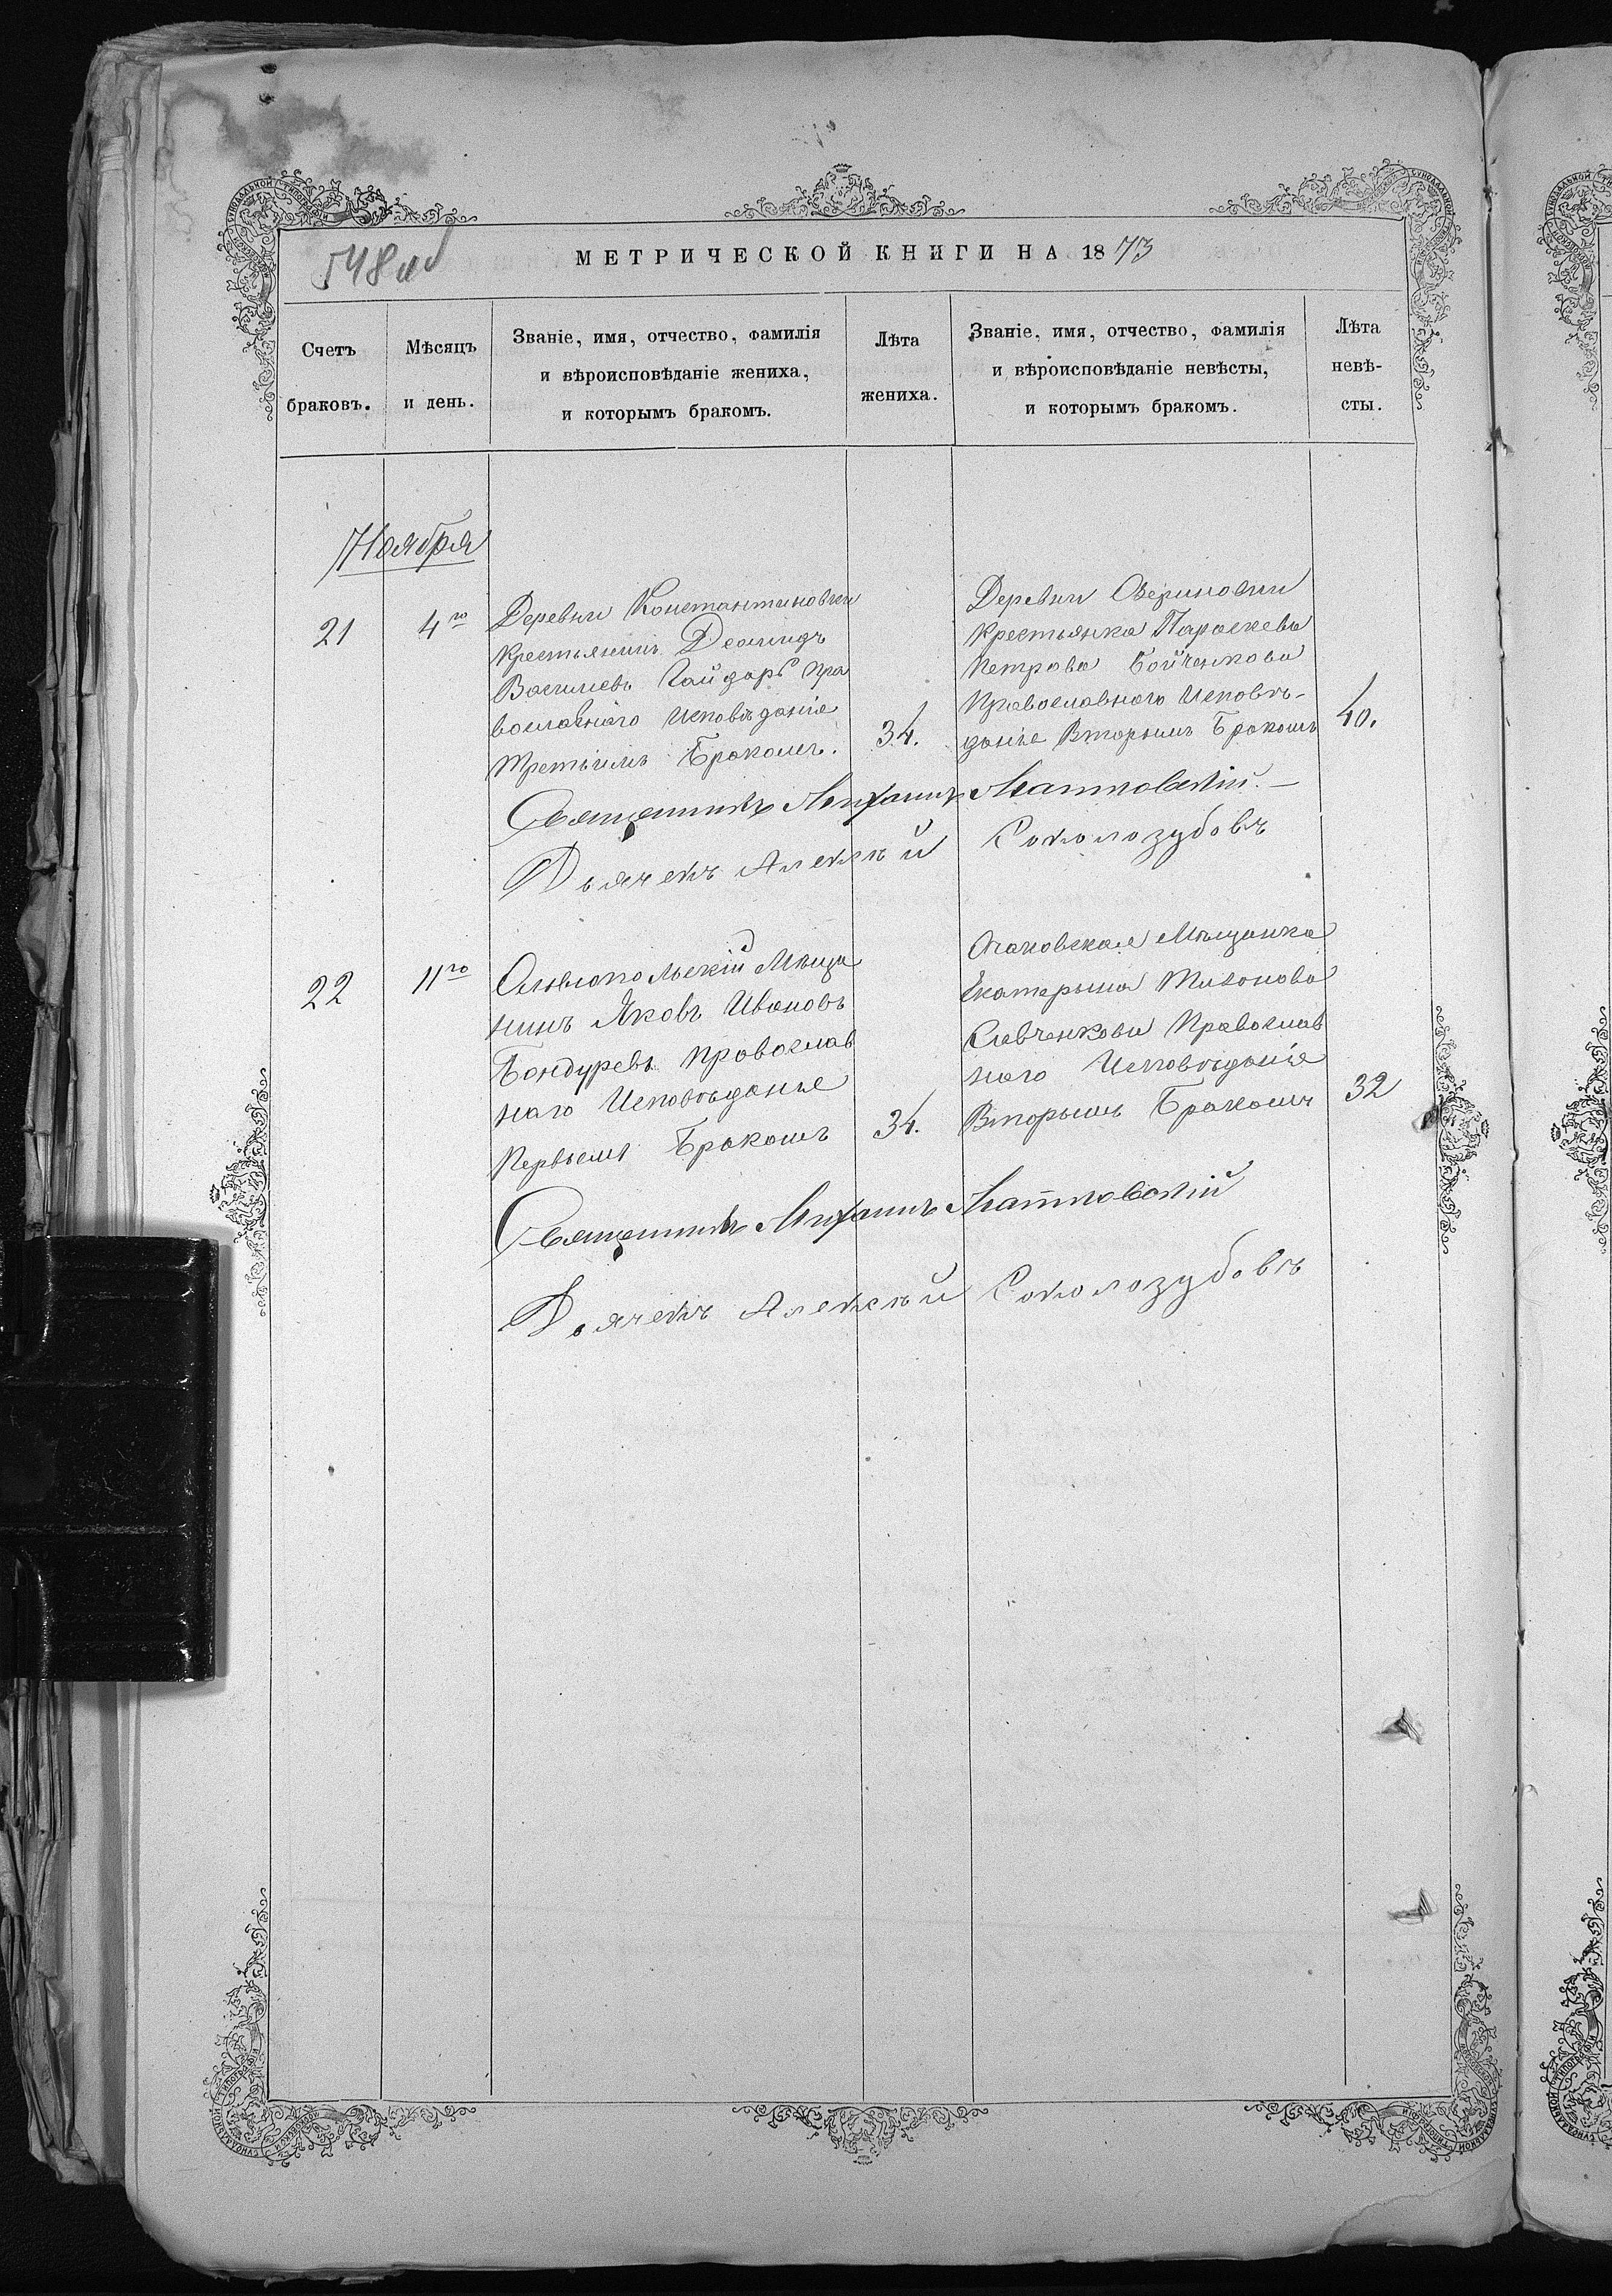 548 об
МЕТРИЧЕСКОЙ КНИГИ НА 1873
Счетъ браковъ.
Мѣсяцъ и день.
Званіе, имя, отчество, фамилія
и вѣроисповѣданіе жениха,
и которымъ бракомъ.
Лѣта жениха.
Званіе, имя, отчество, фамилія
и вѣроисповѣданіе невѣсты,
и которымъ бракомъ.
Лѣта невѣ-
сты.
Ноября
21
4го
Деревни Константиновки
Крестьянинъ
Васильевъ Гайдаръ Пра
вославнаго Исповѣданіе
Третьимъ Бракомъ.
34.
Деревни Свериновки
Крестьянка Параскева
Петрова Бойченкова
Православнаго Исповѣ-
данье Вторымъ Бракомъ
40.
Священникъ Михаилъ
Дьячекъ Алексѣй Соколозубовъ
22
11го
Ольвіопольскій Мѣща
нинъ Яковъ Ивановъ
Бондуревъ Православ
наго Исповѣданье
Первымъ Бракомъ
34.
Очаковская Мѣщанка
Екатерина Тихонова
Савченкова Православ
наго Исповѣданіе
Вторымъ Бракомъ
32
Священникъ Михаилъ
Дьячекъ Алексѣй Соколозубовъ